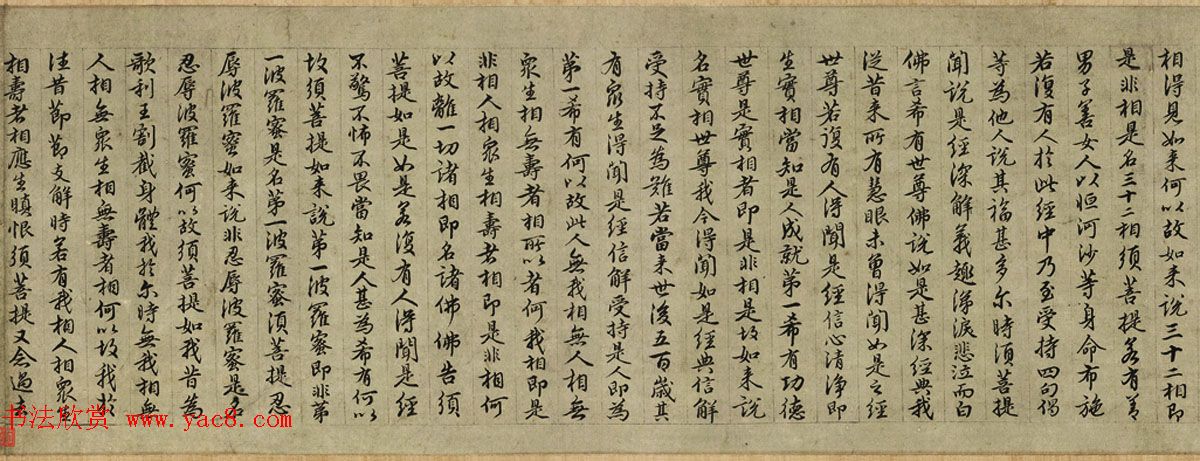 相得見如来何以故如来说三十二相即
是非相是名三十二相须菩提若有善
男子善女人以恒河沙等身命布施
若復有人於此经中乃至受持四句偈
等為他人说其福甚多尔時须菩提
聞说是经深解義趣涕淚悲泣而白
佛言希有世尊佛说如是甚深经典我
従昔来所有慧眼未曾得聞如是之经
世尊若復有人得聞是经信心清净即
生實相當知是人成就第一希有功德
世尊是實相者即是非相是故如来说
名實相世尊我今得聞如是经典信解
受持不足為難若當来世後五百歳其
有眾生得聞是经信解受持是人即為
第一希有何以故此人無我相無人相無
眾生相無壽者相所以者何我相即是
非相人相眾生相壽者相即是非相何
以故離一切諸相即名諸佛佛告须
菩提如是如是若復有人得聞是经
不驚不怖不畏當知是人甚為希有何以
故须菩提如来說第一波羅蜜即非第
一波羅蜜是名第一波羅蜜须菩提忍
辱波羅蜜如来说非忍辱波羅蜜是名
忍辱波羅蜜何以故须菩提如我昔為
歌利王割截身體我於尔時無我相無
人相無眾生相無壽者相何以故我於
往昔節節支解時若有我相人相眾生
相壽者相應生瞋恨须菩提又念過去
书法欣赏 www.yac8.com